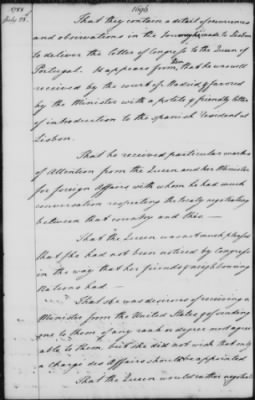 1788
July 28.
1696
That they contain a detail of occurrences
and observations in the Journey made to Lisbon
to deliver the letter of Congress to the Queen of
Portugal. It appears from them that he was well
received by the court of Madrid & favored
by the Minister with a polite & friendly letter
of introduction to the Spanish resident at
Lisbon.
That he received particular marks
of Attention from the Queen and her Minister
for foreign Affairs with whom he had much
conversation respecting the treaty negotiating
between that country and this —
That the Queen was not much pleased
that she had not been noticed by Congress
in the way that her friends & neighbouring
Nations had —
That she was desirous of receiving a
Minister from the United States & of sending
one to them of any rank or degree most agree
able to them, but she did not wish that only
a Charge des Affairs should be appointed
That the Queen would rather negotiate